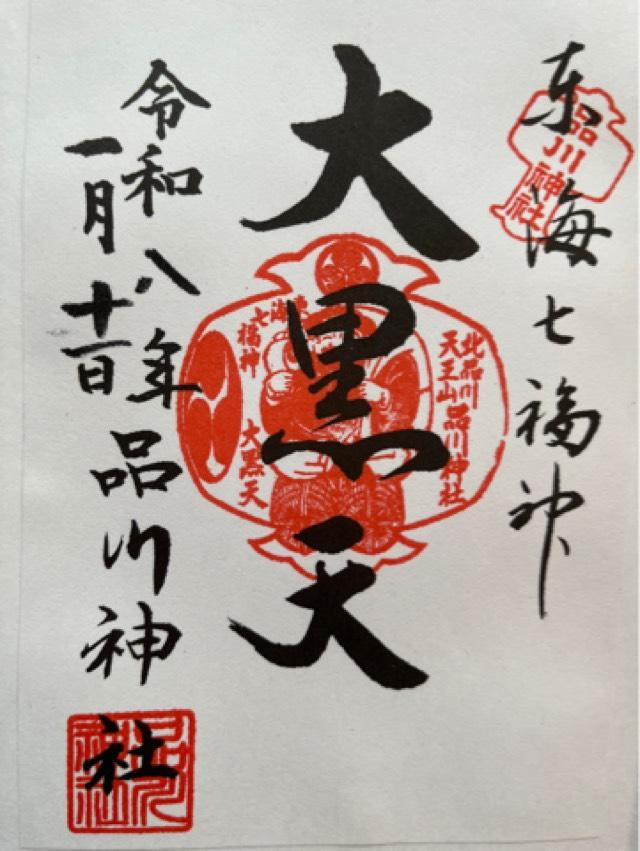 東海七福神
品川
神社
大黒天
北品川
天王山
品川神社
東海
七福神
大黒天
令和八年
一月十一日
品川神社
品川
神社